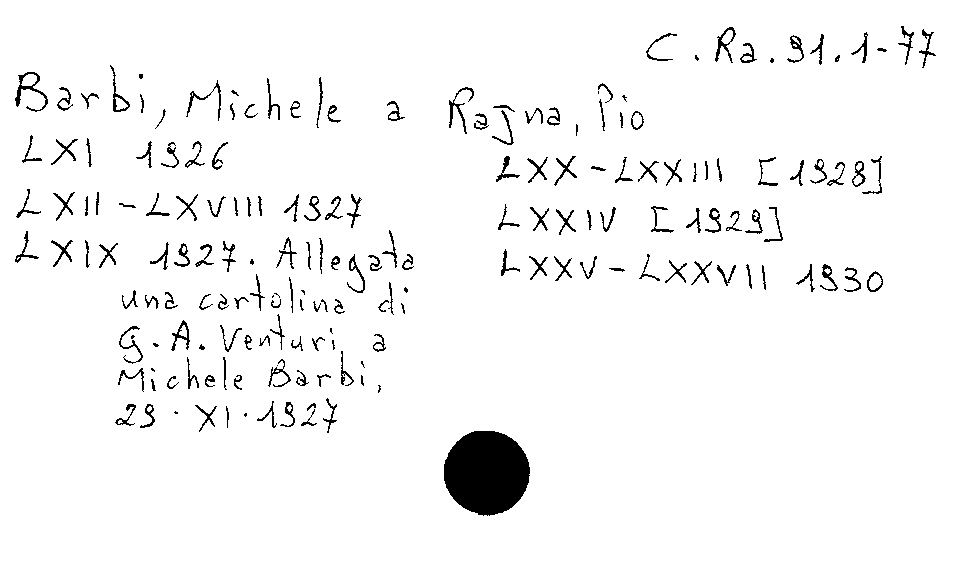 C.Ra.91.1-77
Barbi, Michele a Rajna, Pio
LXI 1926
LXII - LXVIII 1927
LXIX 1927. Allegata
una cartolina di
G. A. Venturi a
Michele Barbi,
29.XI.1927
LXX - LXXIII [1928]
LXXIV [1929]
LXXV - LXXVII 1930